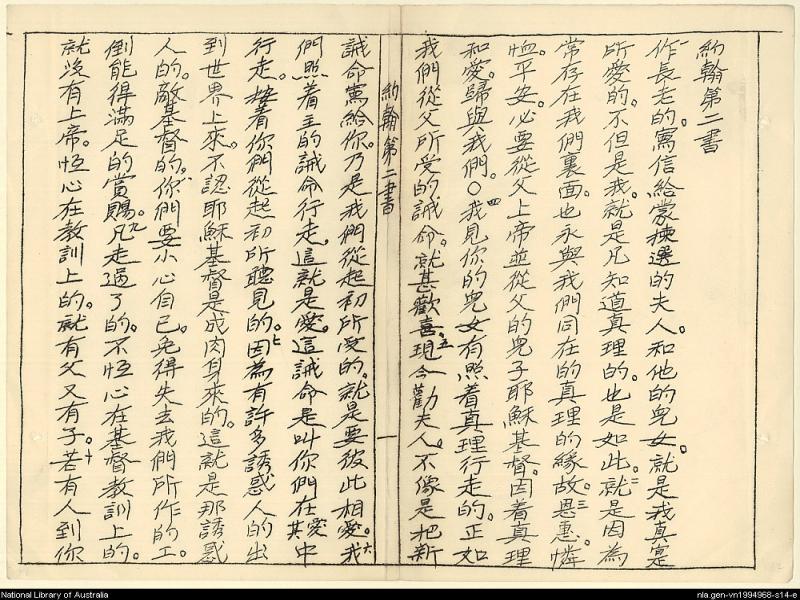 約翰第二書
一作長老的寫信給蒙揀選的夫人。和他的兒女。就是我真寔
所愛的。不但是我。就是凡知道真理的。也是如此。二就是因為
常存在我們裏面。也永與我們同在的真理的緣故。三恩惠。憐
恤。平安。必要從父上帝並從父的兒子耶穌基督。因着真理
和愛。歸與我們。〇四我見你的兒女有照着真理行走的。正如
我們從父所受的誡命。就甚歡喜。五現今勸夫人。不像是把新
約翰第二書
一
誡命寫給你。乃是我們從起初所受的。就是要彼此相愛。六我
們照着主的誡命行走。這就是愛。這誡命是叫你們在愛中
其
行走。接着你們從起初所聽見的。七因為有許多誘惑人的出
到世界上來。不認耶穌基督是成肉身來的。這就是那誘惑
人的。敵基督的。八你們要小心自己。免得失去我們所作的工。
倒能得滿足的賞賜。九凡走過了的。不恆心在基督教訓上的。
就沒有上帝。恆心在教訓上的。就有父又有子。十若有人到你
National Library of Australia
nla.gen-vn1994968-s14-e